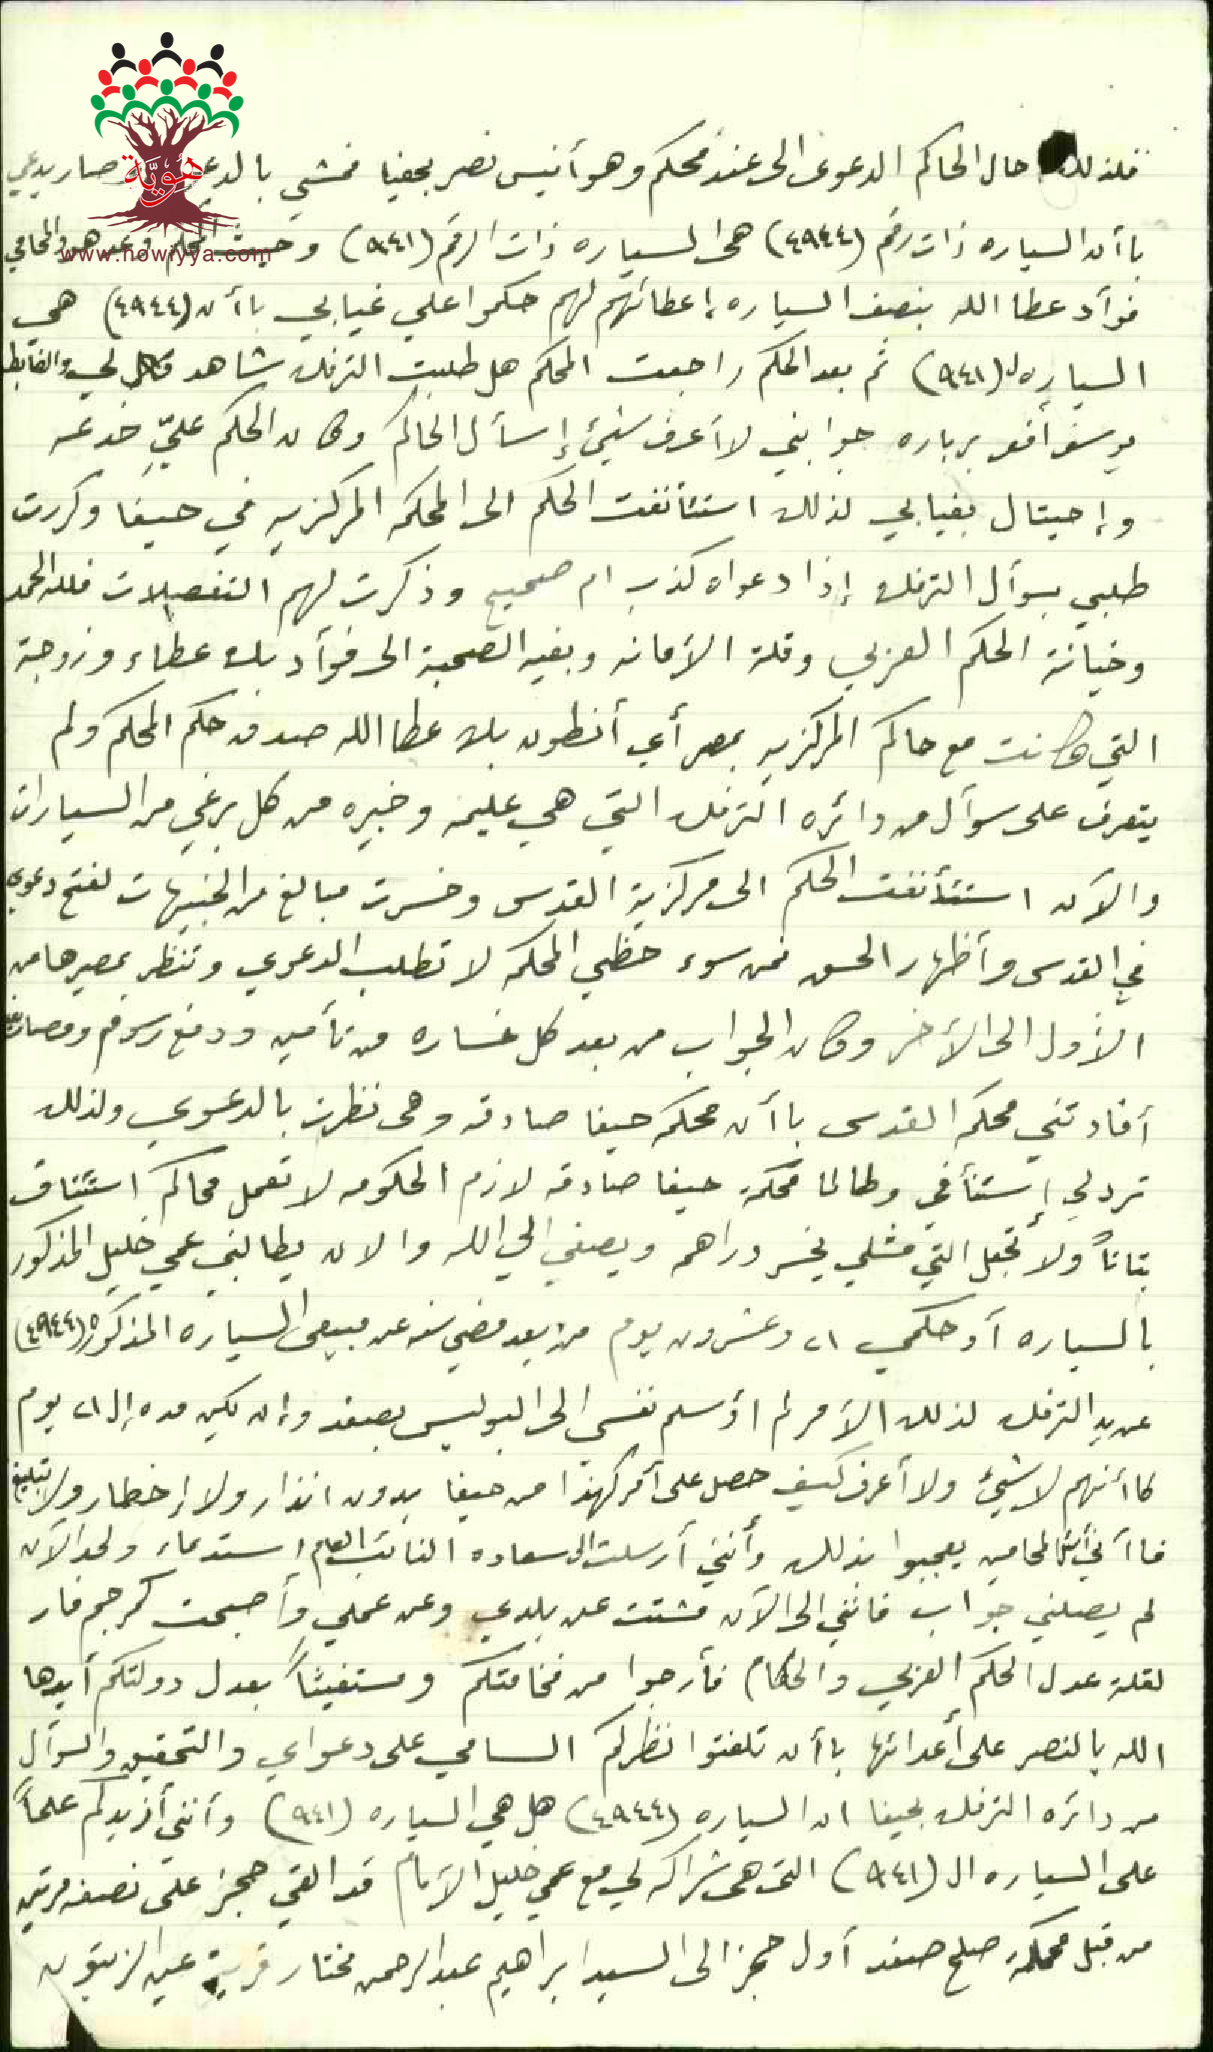 هوية
www.howiyya.com
فلذلك احال الحاكم الدعوى الى عند محكم وهو أنيس نصر بحيفا فمشي بالدعوى وصار يدعي
باأن السياره ذات رقم (٤٩٤٤) هى السياره ذات الرقم (٩٤١) وحيث المحكم وعد هو والمحامي
فوآد عطا الله بنصف السياره إعطائهم لهم حكموا علي غيابي باأن (٤٩٤٤) هي
السياره ال (٩٤١) ثم بعد الحكم راجعت المحكم هل طلبت الترفك شاهد قال لي والضابط
يوسف أفندي برباره جوابني لا أعرف شيئ إسأل الحاكم وكان الحكم عليّ خدعه
وإحيتال بغيابي لذلك استئانفت الحكم الى المحكمه المركزيه في حيفا وكررت
طلبي بسوآل الترفك إذا دعواه كذب ام صحيح وذكرت لهم التفصيلات فلله الحمد
وخيانة الحكم العربي وقلة الأمانه وبغيه الصحبة الى فوآد بك عطاء وزوجة
التي كانت مع حاكم المركزيه بمصر أي أنطون بك عطا الله صدق حكم المحكم ولم
يتعرف على سوآل من دائره الترفك التي هي عليمه وخبيره من كل برغي من السيارات
والآن استئأنفت الحكم الى مركزية القدس وخسرت مبالغ من الجنيهات لفتح دعوي
في القدس وأظهار الحق فمن سوء حظي المحكمه لا تطلب الدعوي وتنظر بمصيرها من
الأول الى الأخر وكان الجواب من بعد كل خساره من تأمين ودفع رسوم ومصاريف
أفادتني محكمه القدس باأن محكمه حيفا صادقه وهى نظرت بالدعوي ولذلك
ترد لي إستئنافي وطالما محكمة حيفا صادقه لازم الحكومه لا تعمل محاكم استئناف
بتاتاً ولا تجعل التي مثلي يخسر دراهم ويصفي الي الله والان يطالبني عمي خليل المذكور
بالسياره أو حكمي ٢١ وعشرون يوم من بعد مضي سنه عن مبيعى السياره المذكوره (٤٩٤٤)
عن يد الترفك لذلك الأمر لم أوسلم نفسي الى البوليس بصفد وإن يكن مده إل ٢١ يوم
كاأنهم لا شيئ ولا أعرف كيف حصل على أمر كهذا من حيفا بدون انذار ولا إخطار ولا تبليغ
المحامين يعجبوا بذلك وأنني أرسلت الى سعاده النائب العام إستدعاء ولحد الآن
لم يصلني جواب فانني الى الآن مشتت عن بلدي وعن عملي وأصبحت كمرجم فار
لقلة عدل الحكم العربي والحكام فأرجوا من فخامتكم ومستغيثاً بعدل دولتكم أيدها
الله بالنصر على أعدائها باأن تلفتوا نظركم السامي على دعواي والتحقيق والسوآل
من دائره الترفك بحيفا ان السياره (٤٩٤٤) هل هي السياره (٩٤١) وأنني أزيدكم علماً
على السياره ال (٩٤١) التى هى شراكه لي مع عمي خليل الأيام قد القي حجز على نصفه مرتين
من قبل محكمة صلح صفد أول حجز الى السيد ابراهيم عبد الرحمن مختار قرية عين الزيتون